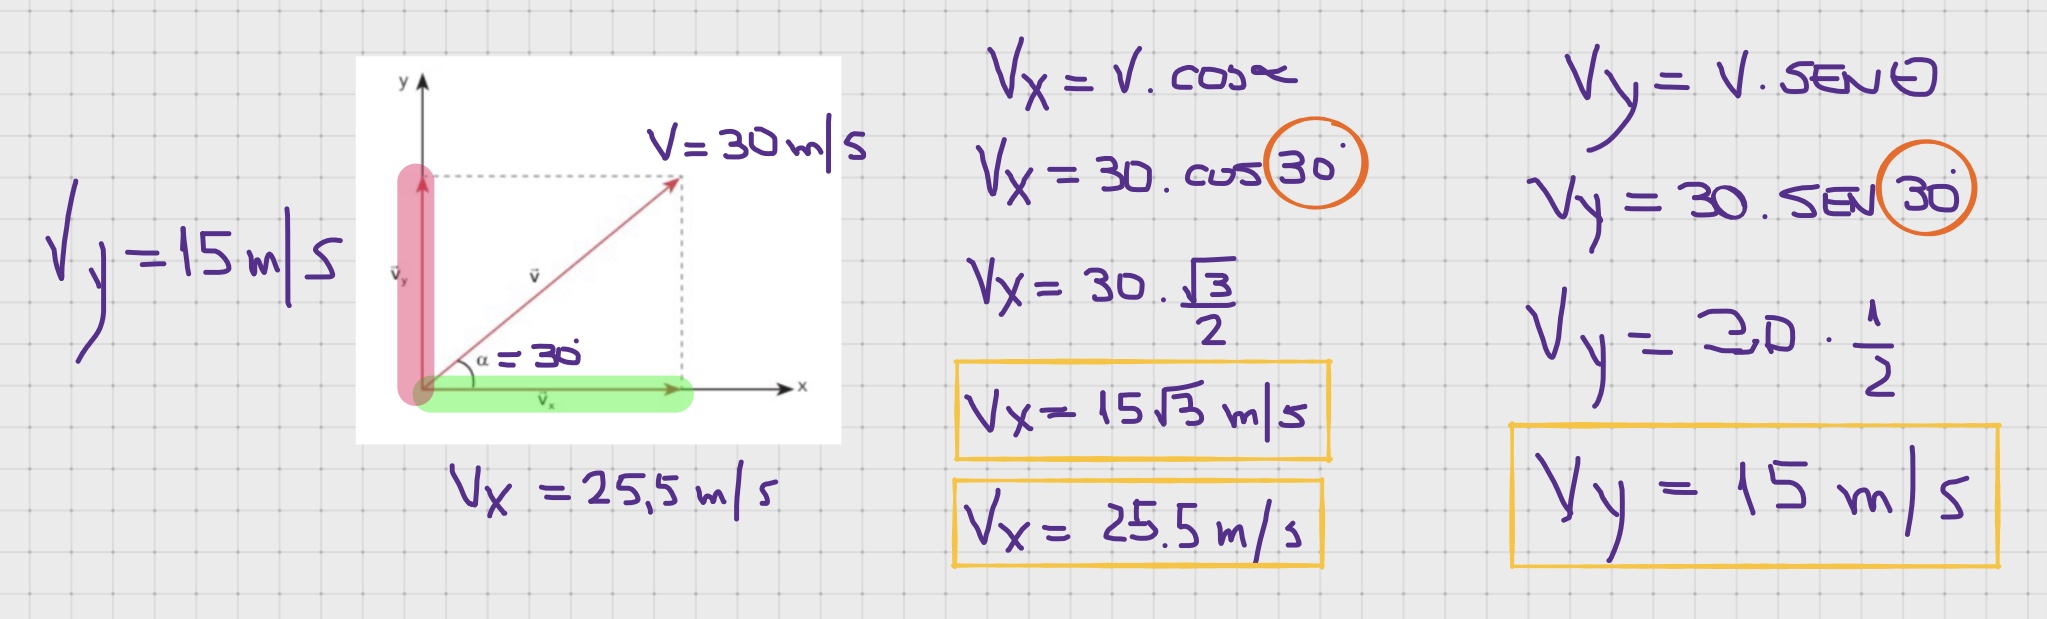 Vy = 15 m/s
y
V = 30 m/s
v⃗y
v⃗
α = 30°
v⃗x
x
Vx = 25,5 m/s
Vx = V. cos α
Vx = 30. cos 30°
Vx = 30. √3/2
Vx = 15√3 m/s
Vx = 25.5 m/s
Vy = V. SEN θ
Vy = 30. SEN 30°
Vy = 30 . 1/2
Vy = 15 m/s